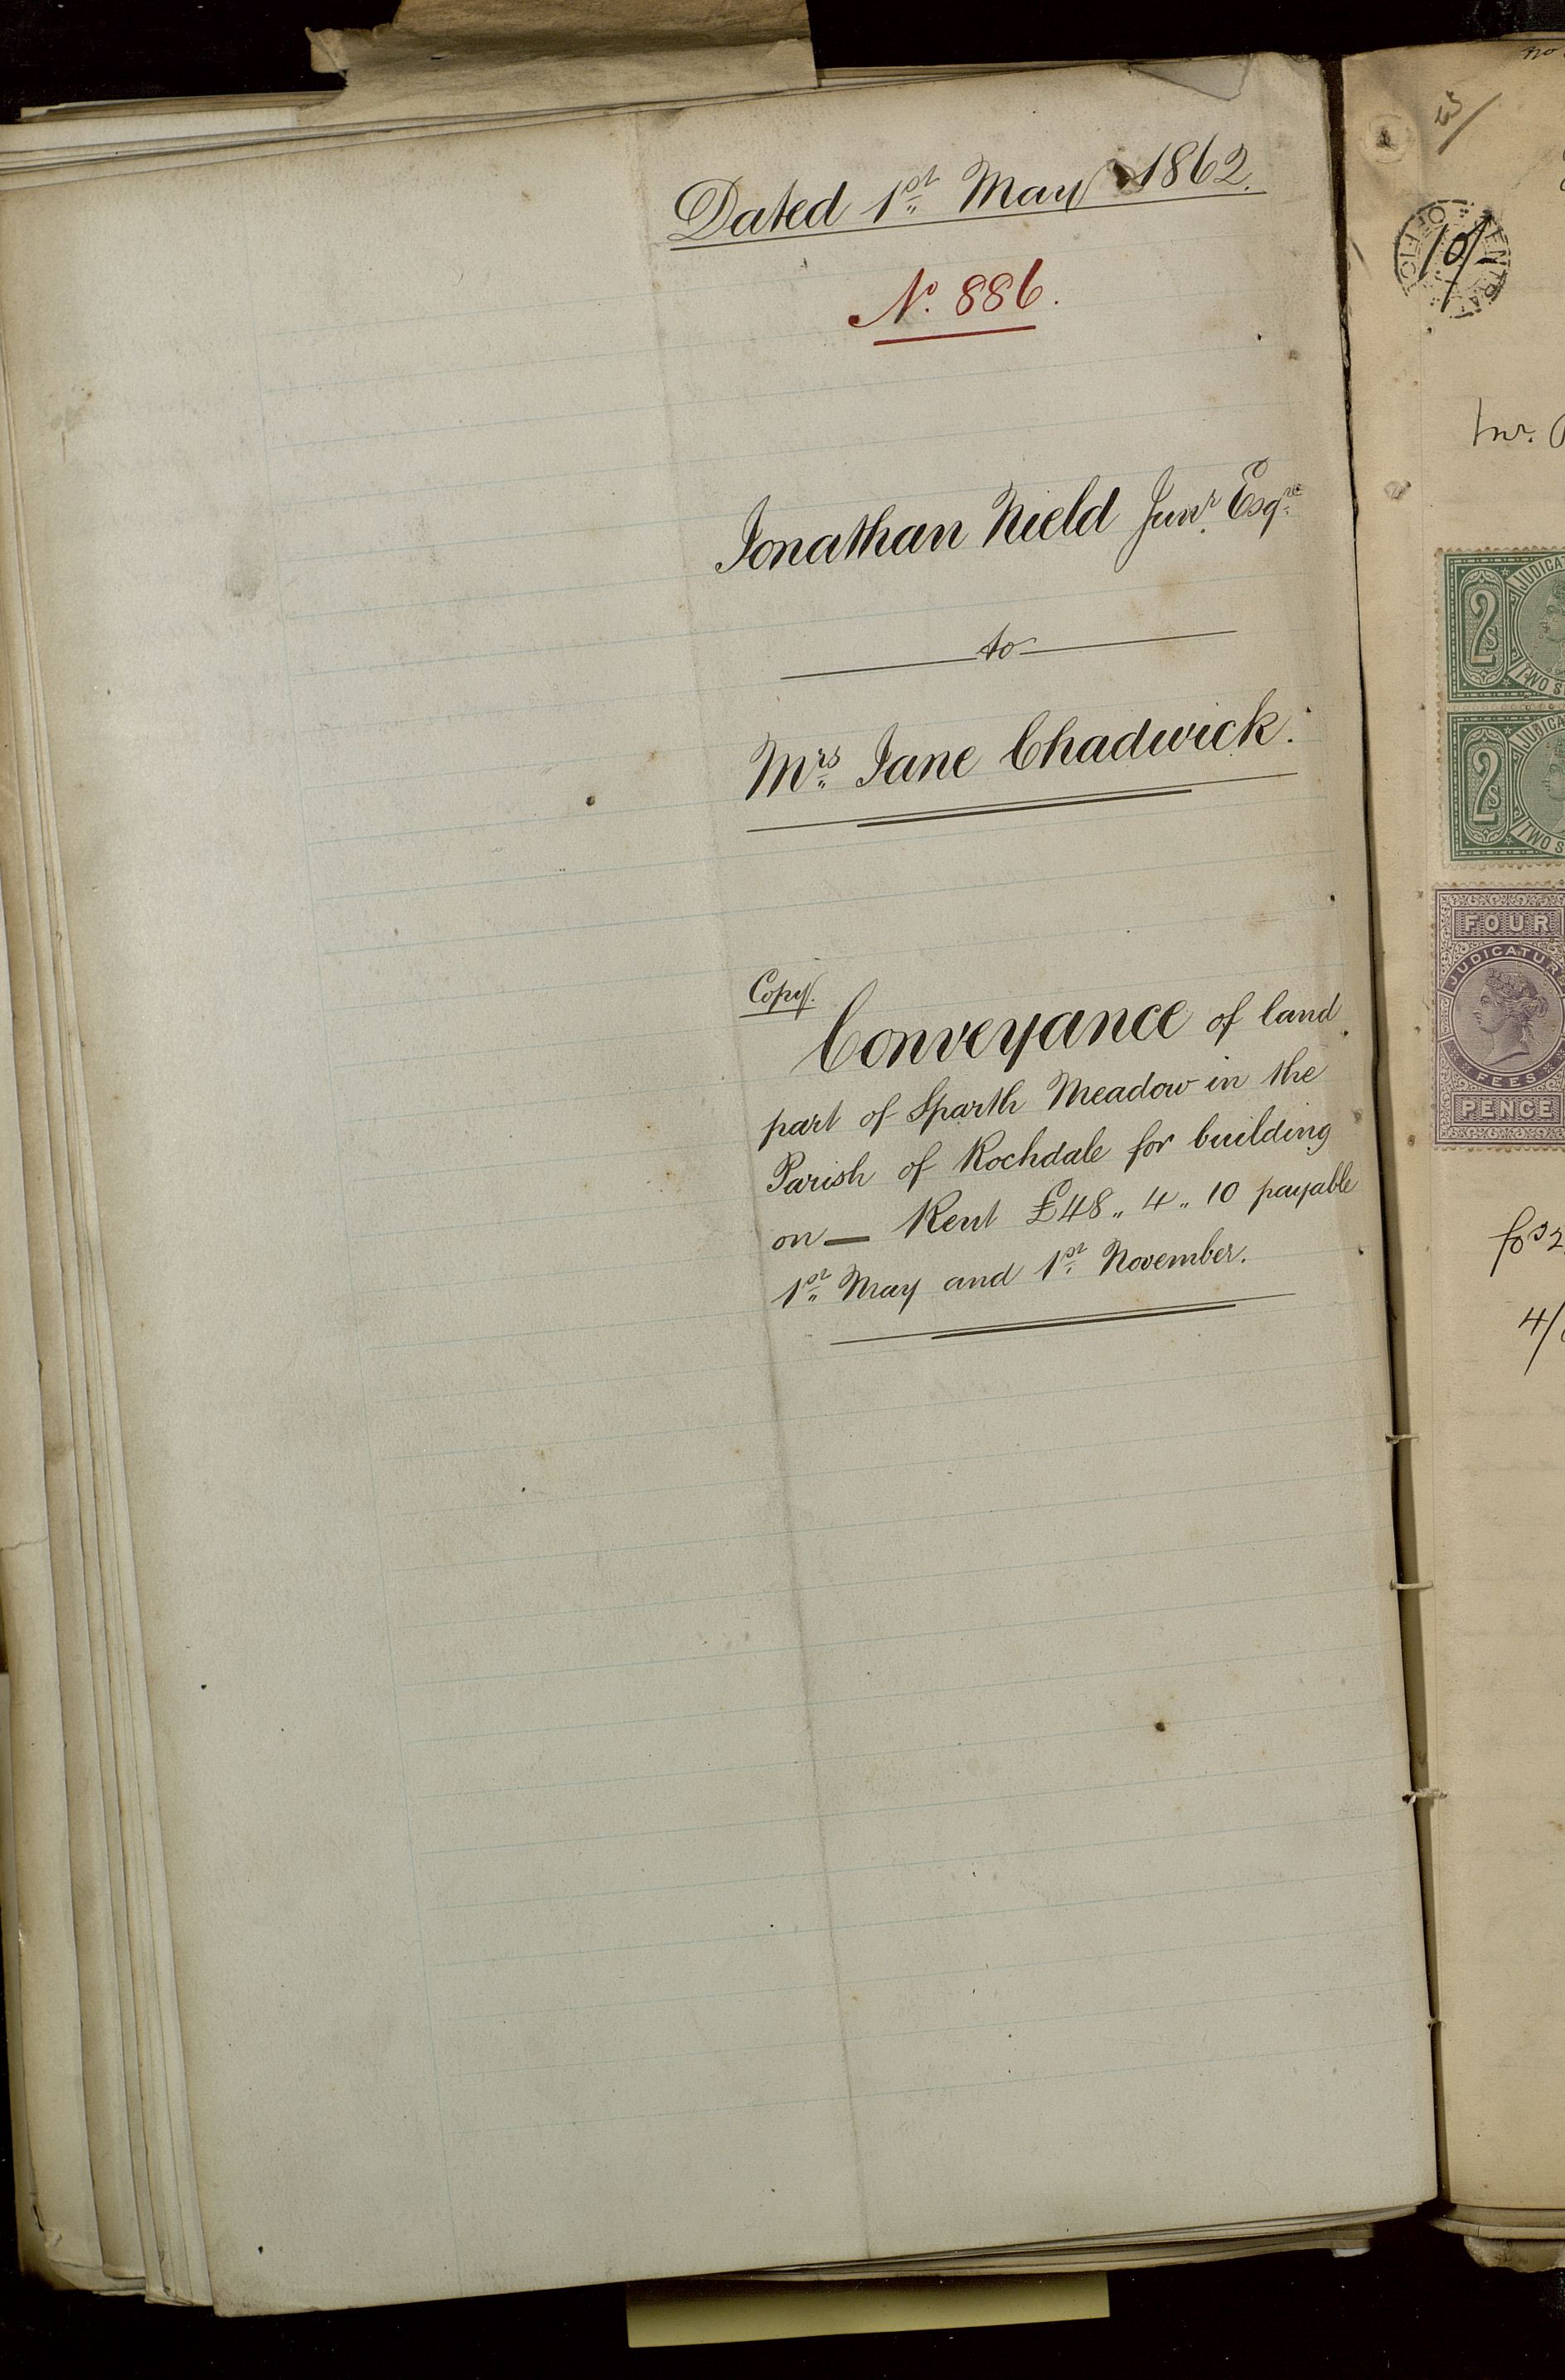 Dated 1st May 1862.
No. 886.
Jonathan Nield Junr. Esqre.
to
Mrs Jane Chadwick.
Copy.
Conveyance of land
part of Sparth Meadow in the
Parish of Rochdale for building
on — Rent £48 " 4 " 10 payable
1st May and 1st November.
no
10/
2s
TWO S
2s
TWO S
FOUR
JUDICATUR
FEES
PENCE
fos 2
4/